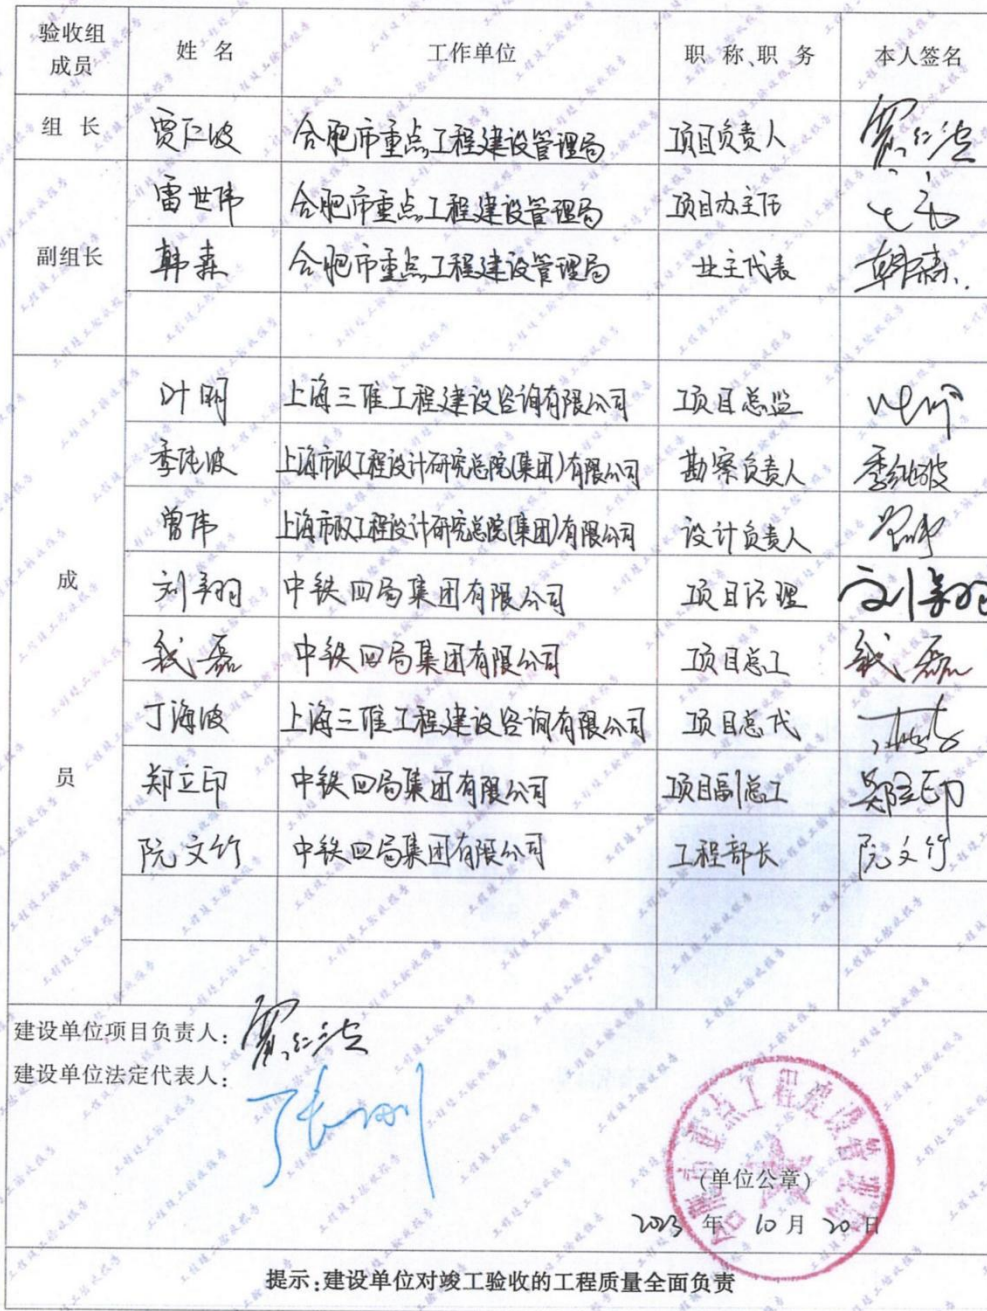 验收组成员 姓 名 工作单位 职 称、职 务 本人签名
组 长 贾仁波 合肥市重点工程建设管理局 项目负责人 贾仁波
雷世伟 合肥市重点工程建设管理局 项目办主任
副组长 韩森 合肥市重点工程建设管理局 业主代表 韩森
叶明 上海三维工程建设咨询有限公司 项目总监
季纯波 上海市政工程设计研究总院(集团)有限公司 勘察负责人
曾伟 上海市政工程设计研究总院(集团)有限公司 设计负责人 曾伟
成 刘翔 中铁四局集团有限公司 项目经理 刘翔
磊 中铁四局集团有限公司 项目总工 磊
丁海波 上海三维工程建设咨询有限公司 项目总代
员 郑立印 中铁四局集团有限公司 项目副总工 郑立印
阮文竹 中铁四局集团有限公司 工程部长 阮文竹
建设单位项目负责人: 贾仁波
建设单位法定代表人:
合肥市重点工程建设管理局
(单位公章)
2023 年 10 月 20 日
提示:建设单位对竣工验收的工程质量全面负责